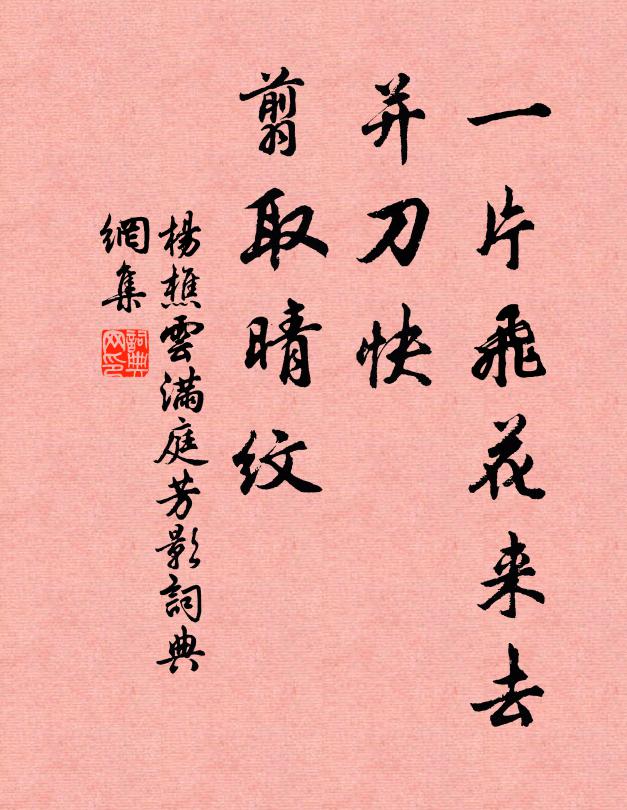 一片飛花来去
并刀快
翦取晴紋
楊樵雲滿庭芳影詞典
網集
詞典
网印